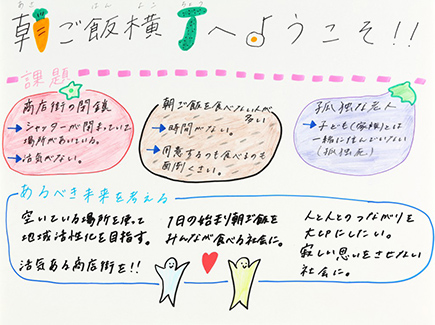 あさ はん よこ ちょう
朝ご飯横丁へようこそ!!
課題
商店街の閉鎖
→シャッターが閉まっている
場所があいている。
→活気がない。
朝ご飯を食べない人が
多い
→時間がない。
→用意するのも食べるのも
面倒くさい。
孤独な老人
→子ども(家族)とは
一緒に住んでいない
(孤独死)
あるべき未来を考える
空いている場所を使って
地域活性化を目指す。
活気ある商店街を!!
1日の始まり朝ご飯を
みんなが食べる社会に。
人と人とのつながりを
大切にしたい。
寂しい思いをさせない
社会に。